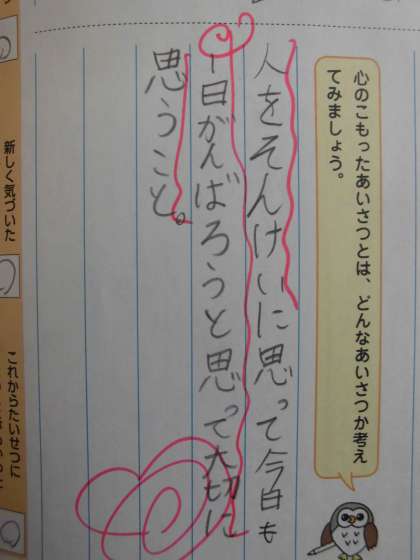 心のこもったあいさつとは、どんなあいさつか考え
てみましょう。
人をそんけいに思って今日も
1日がんばろうと思って大切に
思うこと。
新しく気づいた
これからたいせつに